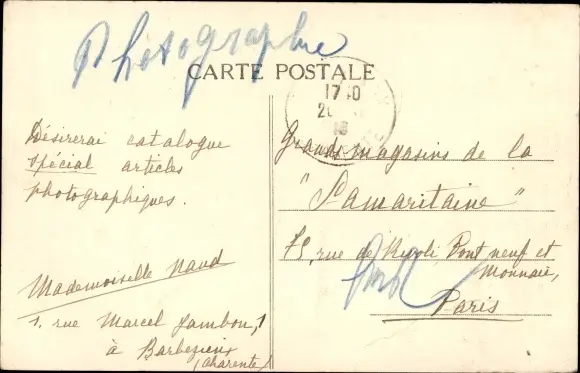 Photographie
CARTE POSTALE
17 10
Désirerai catalogue
spécial articles
photographiques.
Mademoiselle Naud
1, rue Marcel Jambon, 1
à Barbezieux
(Charente)
Grands magasins de la
"Samaritaine"
75, rue de Rivoli, Pont neuf et
Monnaie,
Paris